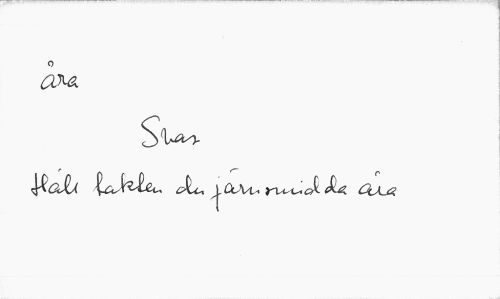 åra
Svar
Håll takten du järnsmidda åra